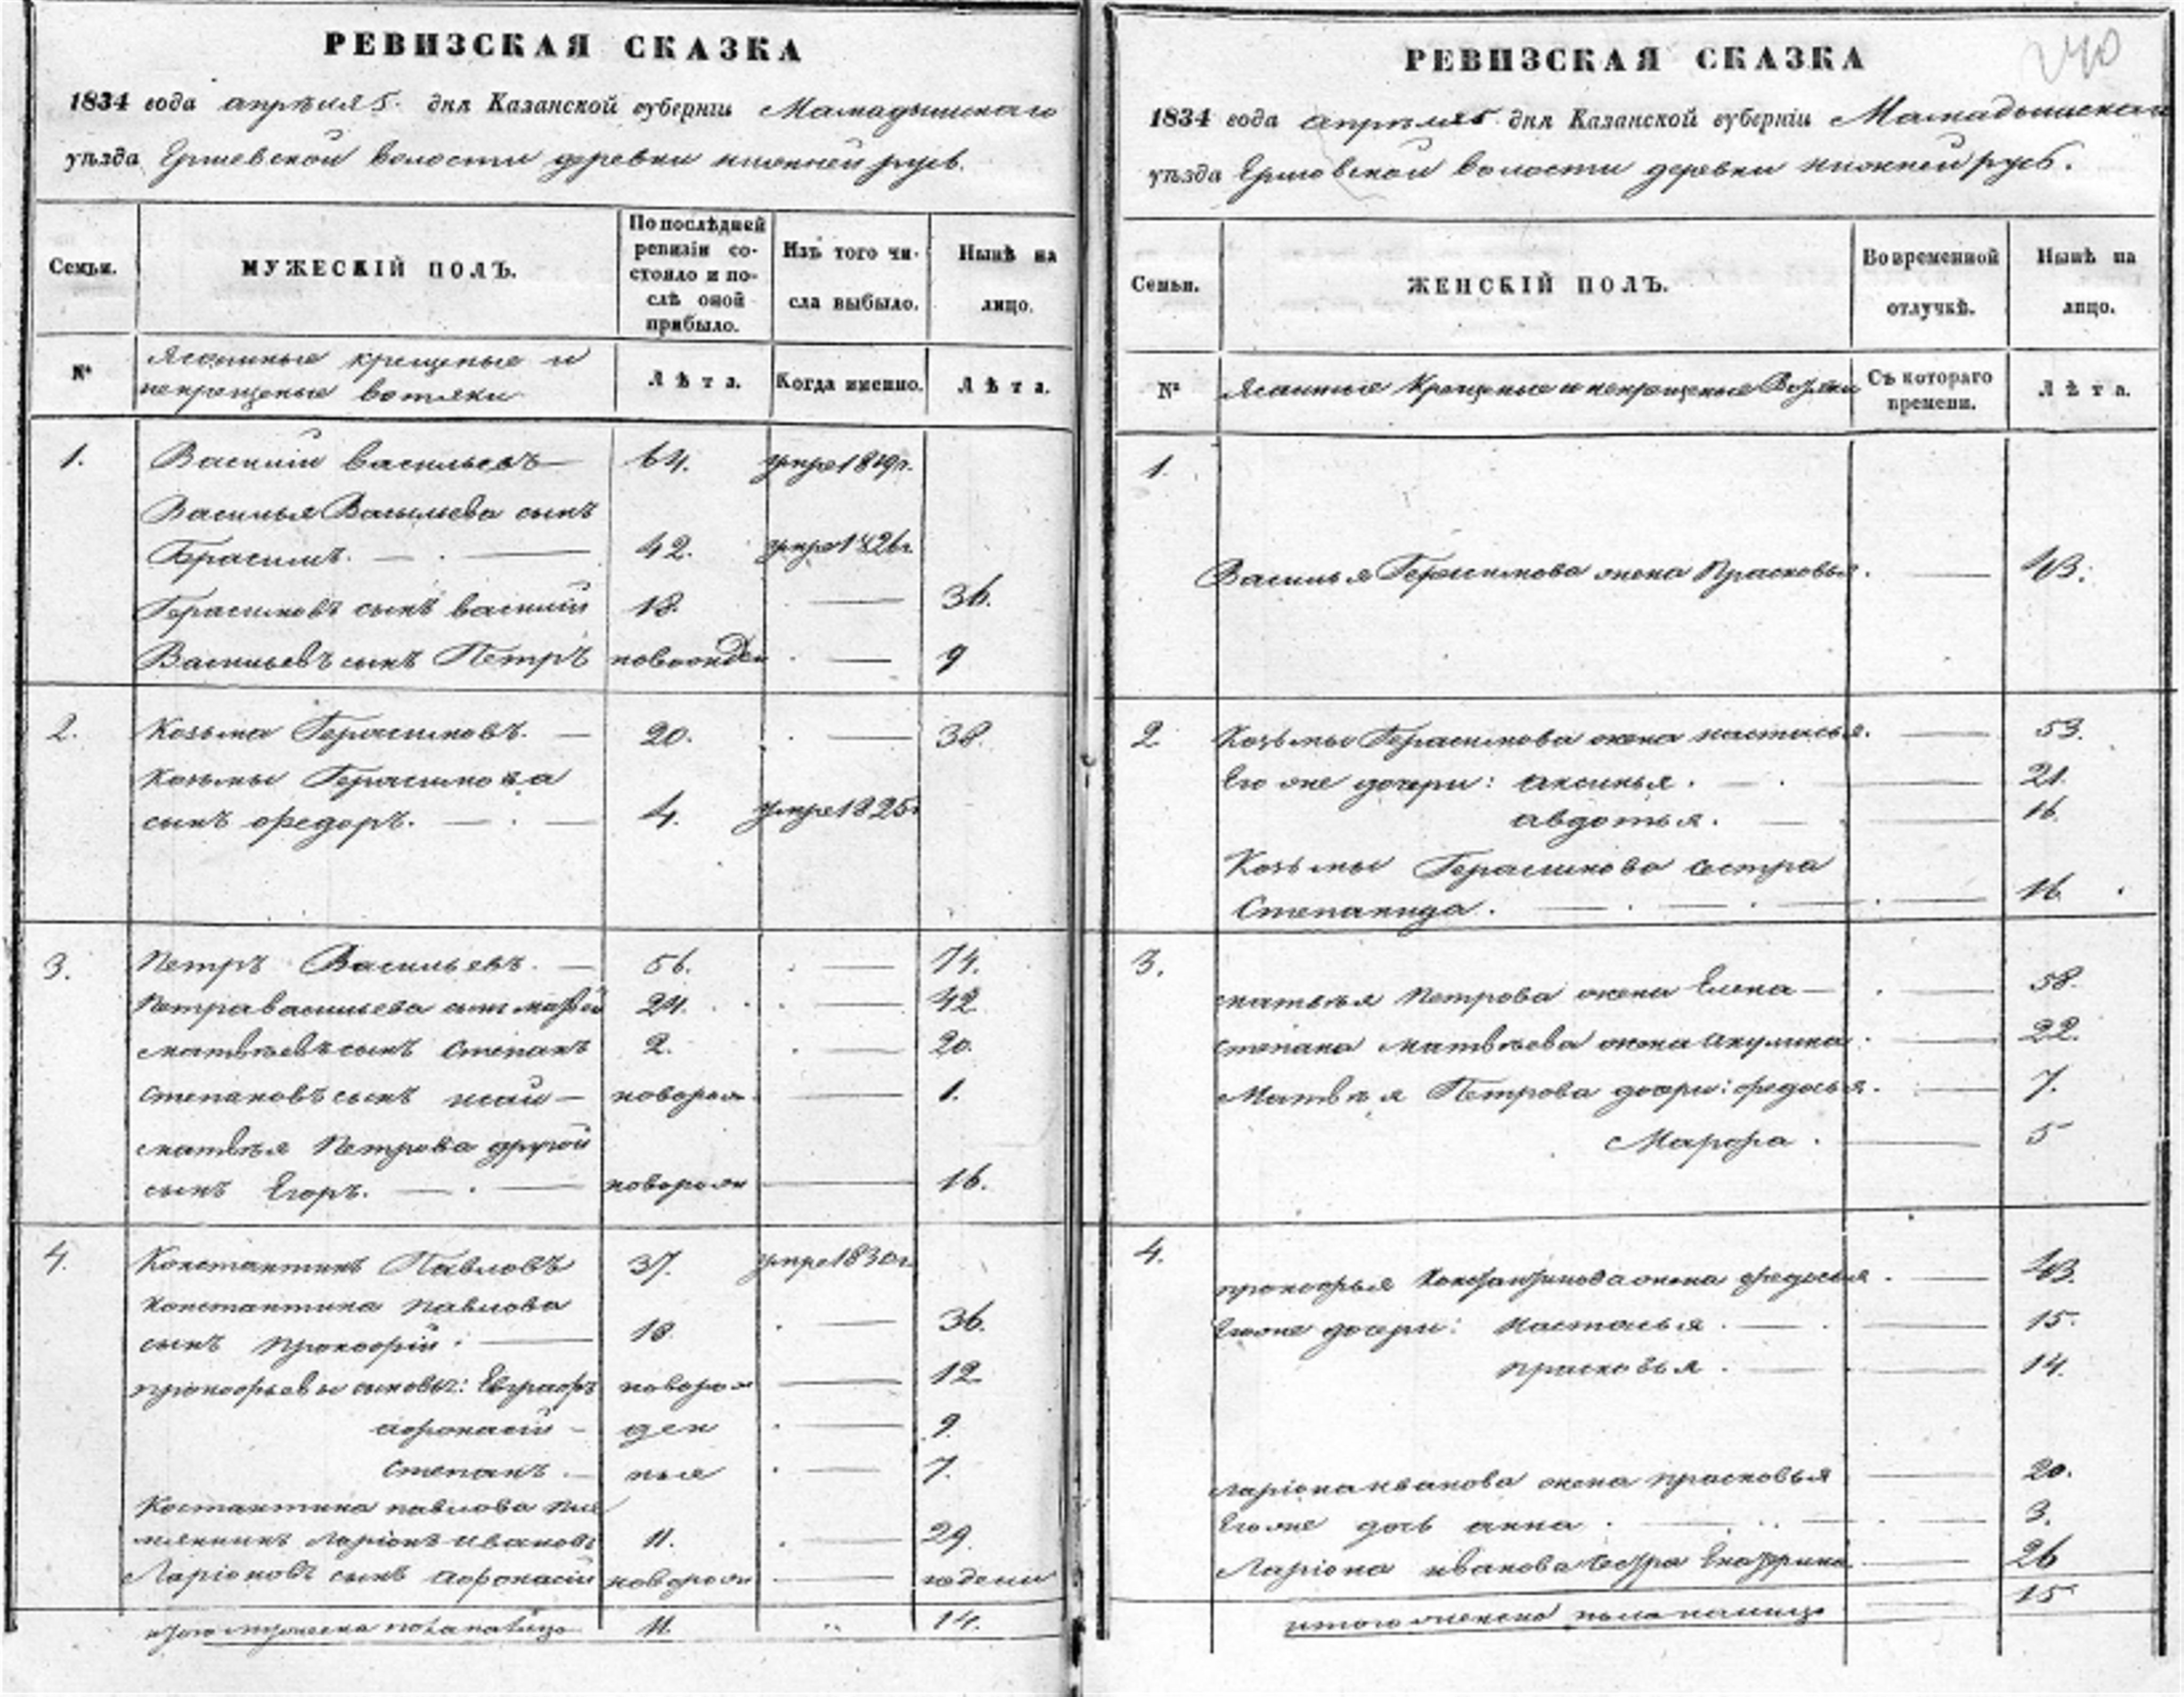 РЕВИЗСКАЯ СКАЗКА
1834 года апрѣля 5. дня Казанской губерніи Мамадышскаго
уѣзда Ершевской волости деревни нижней русь.
Семьи.
МУЖЕСКІЙ ПОЛЪ.
По послѣдней
ревизіи со-
стояло и по-
слѣ оной
прибыло.
Изъ того чи-
сла выбыло.
Нынѣ на
лицо.
№
Ясашные крещеные и
некрещеные вотяки
Лѣта.
Когда именно.
Лѣта.
1. Василий васильевъ 64. умре 1819г.
Василья Васильева сынъ
Герасимъ. 42. умре 1826г.
Герасимовъ сынъ василий 18. 36.
Васильевъ сынъ Петръ новоожден 9
2. Козьма Герасимовъ. 20. 38.
Козьмы Герасимова
сынъ федоръ. 4. умре 1825г
3. Петръ Васильевъ. 56. 74.
Петра васильева сынъ матвѣй 24. 42
матвѣевъ сынъ степанъ 2. 20.
степановъ сынъ новорож. 1.
матвѣя Петрова другой
сынъ Егоръ. новорож 16.
4. Константинъ Павловъ 37. умре 1830г.
Константина павлова
сынъ прокофій. 18. 36.
прокофьевы сыновья: Евграфъ новорож 12.
афонасій ден 9.
степанъ. ные 7.
Костантина павлова пле
мянникъ Ларіонъ ивановъ 11. 29.
Ларіоновъ сынъ афонасій новорож неделя
итого мужеска пола налицо 11. „ 14.
РЕВИЗСКАЯ СКАЗКА
240
1834 года апрѣля 5 дня Казанской губерніи Мамадышскаго
уѣзда Ершовской волости деревни нижней русь.
Семьи.
ЖЕНСКІЙ ПОЛЪ.
Во временной
отлучкѣ.
Нынѣ на
лицо.
№
Ясашные Крещеные и некрещеные Вотяки
Съ котораго
времени.
Лѣта.
1.
Василья Герасимова жена Прасковья. 43.
2 Козьмы Герасимова жена настасья. 53.
Его же дочери: аксинья. 21.
авдотья. 16.
Козьмы Герасимова сестра
Степанида. 16.
3.
матвѣя Петрова жена Елена 58.
степана матвѣева жена акулина. 22.
Матвѣя Петрова дочери: федосья. 7.
Марфа. 5
4.
прокофья Константинова жена федосья. 43.
Его же дочери: настасья. 15.
прасковья. 14.
ларіона иванова жена прасковья 20.
Его же дочь анна. 3.
Ларіона иванова сестра Екатерина 26
итого женска пола налицо 15